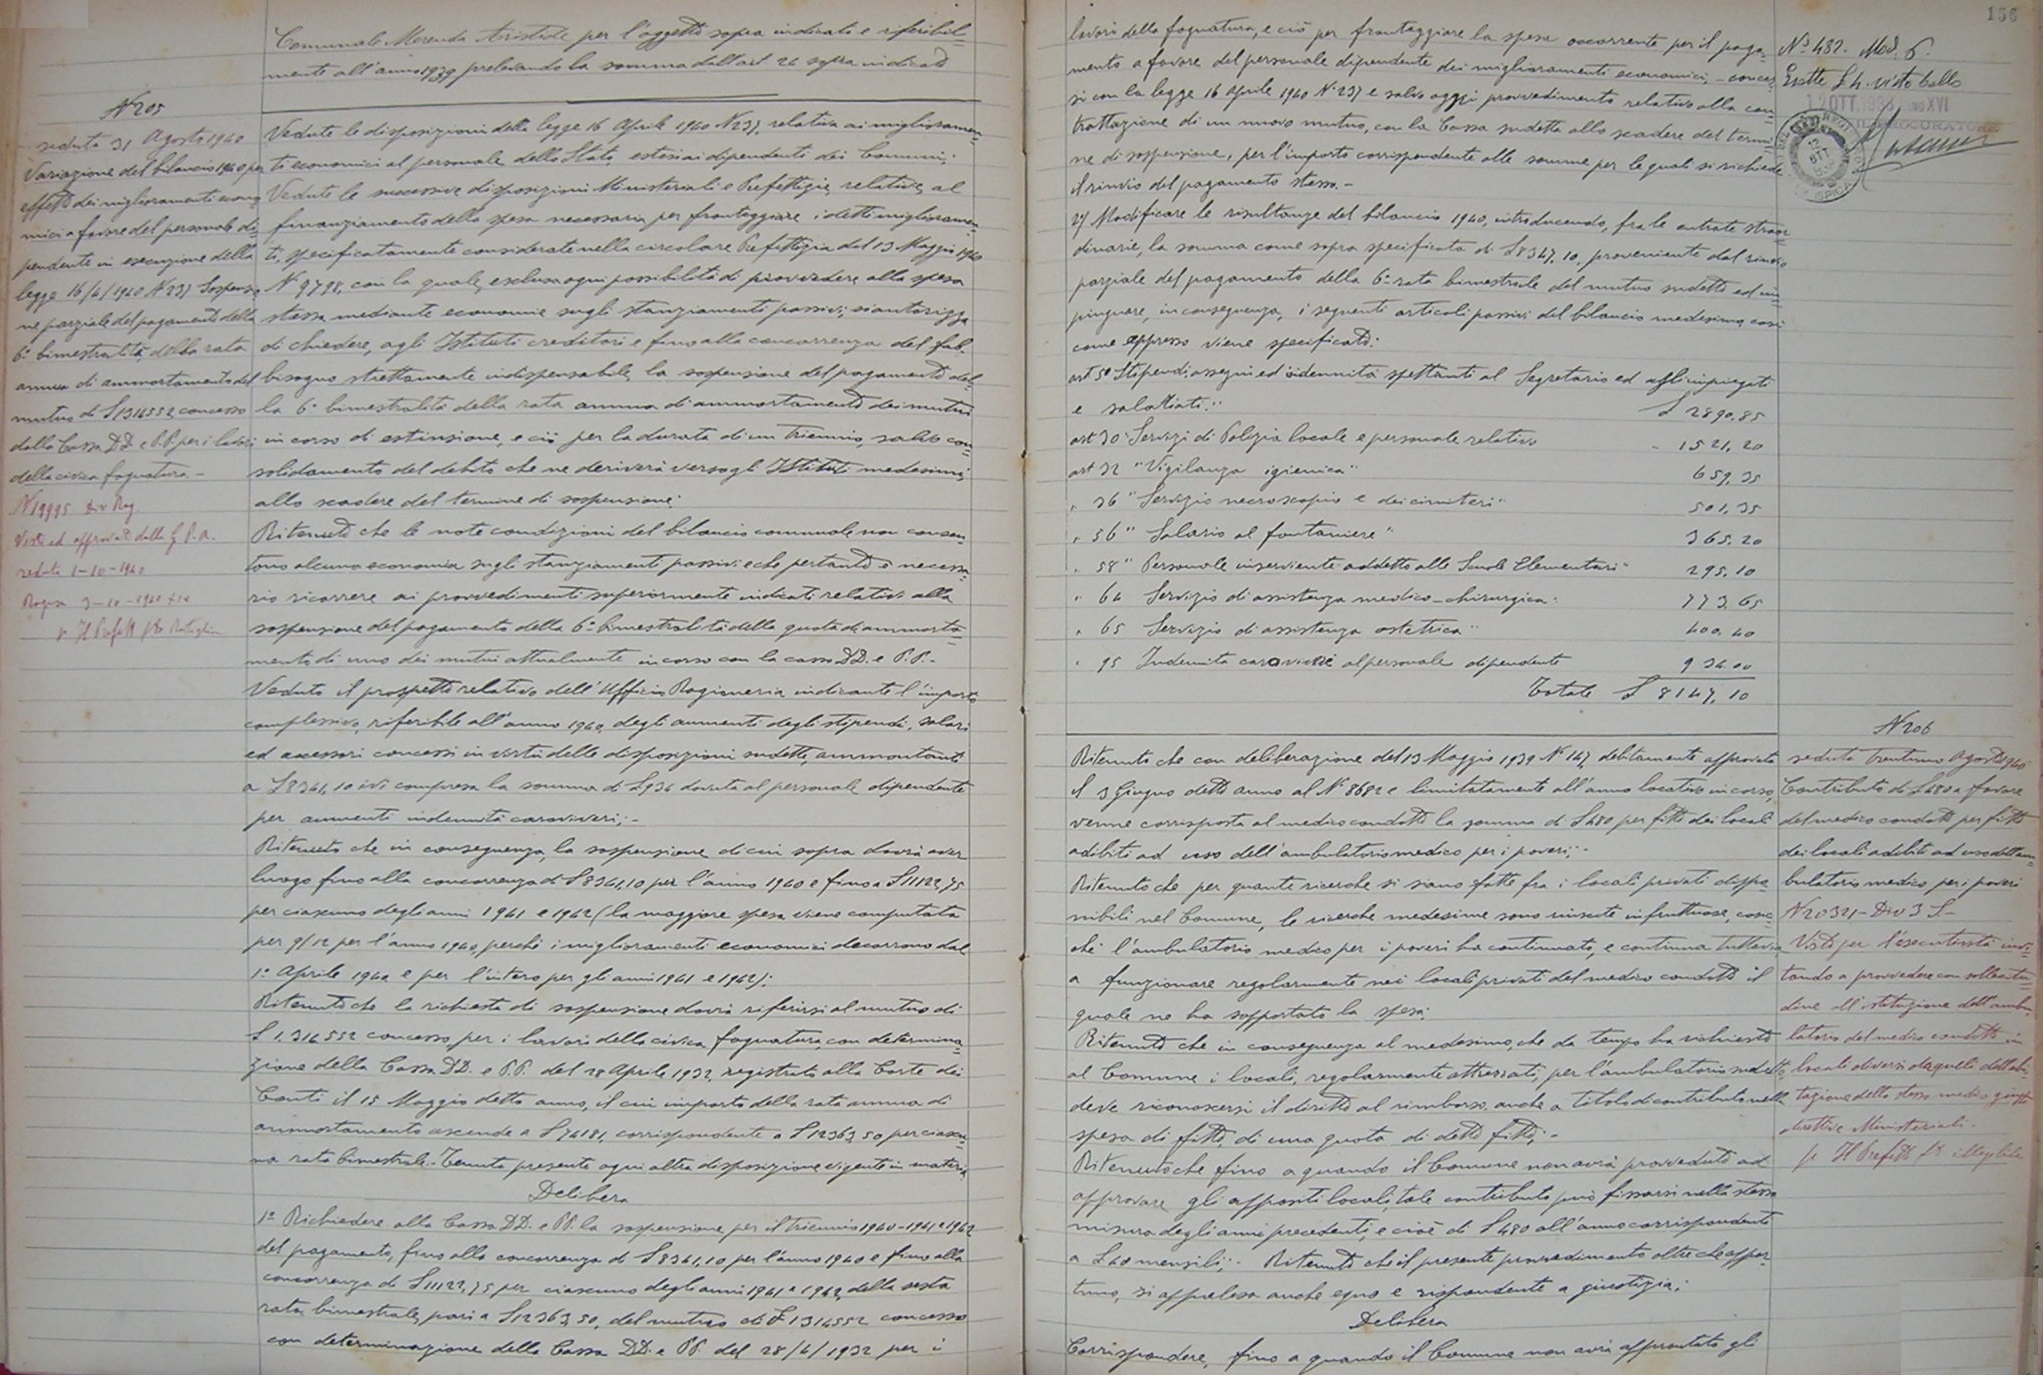 Comunale Merenda Aristide per l'oggetto sopra indicato e riferibil-
mente all'anno 1939 prelevando la somma dall'art. 26 sopra indicato
N 205
seduta 31 Agosto 1940
Variazione del bilancio 1940 per
effetto dei miglioramenti econo
mici a favore del personale di
pendente in esecuzione della
legge 16/4/1940 N 237 Sospensio
ne parziale del pagamento della
6ª bimestralità della rata
annua di ammortamento del
mutuo di £ 1314552 concesso
dalla Cassa DD. e P.P. per i lavori
della civica fognatura -
N 19995 Div. Rag.
Visto ed approvato dalla G. P. A.
seduta 1-10-1940
Ragusa 3-10-1940 XIX
p. Il Prefetto
Vedute le disposizioni della legge 16 Aprile 1940 N 237, relativa ai miglioramen-
ti economici al personale dello Stato, estesi ai dipendenti dei Comuni;
Vedute le successive disposizioni Ministeriali e Prefettizie, relative al
finanziamento della spesa necessaria per fronteggiare i detti miglioramen-
ti, specificatamente considerate nella circolare Prefettizia del 13 Maggio 1940
N 9798, con la quale, esclusa ogni possibilità di provvedere alla spesa
stessa mediante economie sugli stanziamenti passivi; si autorizza
di chiedere, agli Istituti creditori e fino alla concorrenza del fab-
bisogno strettamente indispensabile, la sospensione del pagamento del-
la 6ª bimestralità della rata annua di ammortamento dei mutui
in corso di estinsione, e ciò per la durata di un triennio, salvo con
solidamento del debito che ne deriverà verso gli Istituti medesimi,
allo scadere del termine di sospensione;
Ritenuto che le note condizioni del bilancio comunale non consen-
tono alcuna economia sugli stanziamenti passivi e che pertanto è necessa-
rio ricorrere ai provvedimenti superiormente indicati relativi alla
sospensione del pagamento della 6ª bimestralità della quota di ammorta-
mento di uno dei mutui attualmente in corso con la cassa DD. e P.P. -
Veduto il prospetto relativo dell'Ufficio Ragioneria indicante l'importo
complessivo, riferibile all'anno 1940, degli aumenti degli stipendi, salari
ed accessori concessi in virtù delle disposizioni sudette, ammontante
a £ 8361,10 ivi compresa la somma di £ 936 dovuta al personale dipendente
per aumenti indennità caroviveri; -
Ritenuto che in conseguenza, la sospensione di cui sopra dovrà aver
luogo fino alla concorrenza di £ 8361,10 per l'anno 1940 e fino a £ 11122,75
per ciascuno degli anni 1941 e 1942 (la maggiore spesa viene computata
per 9/12 per l'anno 1940, perché i miglioramenti economici decorrono dal
1° Aprile 1940 e per l'intero per gli anni 1941 e 1942);
Ritenuto che la richiesta di sospensione dovrà riferirsi al mutuo di
£ 1.314552 concesso, per i lavori della civica fognatura, con determina-
zione della Cassa DD. e P.P. del 28 Aprile 1932, registrato alla Corte dei
Conti il 15 Maggio detto anno, il cui importo della rata annua di
ammortamento ascende a £ 74181, corrispondente a £ 12363,50 per ciascu-
na rata bimestrale. Tenuta presente ogni altra disposizione vigente in materia
Delibera
1° Richiedere alla Cassa DD. e PP. la sospensione, per il triennio 1940-1941 e 1942
del pagamento, fino alla concorrenza di £ 8361,10 per l'anno 1940 e fino alla
concorrenza di £ 11122,75 per ciascuno degli anni 1941 e 1942, della sesta
rata bimestrale, pari a £ 12363,50, del mutuo di £ 1314552 concesso
con determinazione della Cassa DD. e PP. del 28/4/1932 per i
156
lavori della fognatura, e ciò per fronteggiare la spesa occorrente per il paga-
mento a favore del personale dipendente dei miglioramenti economici, conces
si con la legge 16 aprile 1940 N. 237 e salvo oggi provvedimento relativo alla con
trattazione di un nuovo mutuo, con la Cassa sudetta allo scadere del termi-
ne di sospensione, per l'importo corrispondente alle somme per le quali si richiede
il rinvio del pagamento stesso. -
2°/ Modificare le risultanze del bilancio 1940, introducendo, fra le entrate straor
dinarie, la somma come sopra specificata di £ 8347,10, proveniente dal rinvio
parziale del pagamento della 6ª rata bimestrale del mutuo sudetto ed im-
pinguare, in conseguenza, i seguenti articoli passivi del bilancio medesimo, così
come appresso viene specificato:
art 5° Stipendi, assegni ed indennità spettanti al Segretario ed agli impiegati
e salariati." £ 2890,85
art 30 "Servizi di Polizia locale e personale relativo - 1521,20
art 32 "Vigilanza igienica" 659,35
" 36 "Servizio necroscopio e dei cimiteri" 501,35
" 56 "Salario al fontaniere" 365,20
" 58 "Personale inserviente addetto alle Scuole Elementari" 295,10
" 64 Servizio di assistenza medico-chirurgica: 773,65
" 65 Servizio di assistenza ostetrica" 400,40
" 95 Indennità caroviveri al personale dipendente 936,00
Totale £ 8147,10
N° 482. Mod. 6.
Esatte £ 4. visto bollo
N 206
seduta trentuno Agosto 1940
Contributo di £ 480 a favore
del medico condotto per fitto
dei locali adibiti ad uso dell'am-
bulatorio medico per i poveri
N 20321 - Div 3 S -
Visto per l'esecutività invi-
tando a provvedere con sollecitu-
dine all'istituzione dell'ambu-
latorio del medico condotto in
locali diversi da quelli dell'abi-
tazione dello stesso medico giuste
direttive Ministeriali -
p. Il Prefetto Fto illegibile
Ritenuto che con deliberazione del 13 Maggio 1939 N° 147, debitamente approvata
il 3 Giugno detto anno al N° 8682 e limitatamente all'anno locativo in corso,
venne corrisposta al medico condotto la somma di £ 480 per fitto dei locali
adibiti ad uso dell'ambulatorio medico per i poveri; -
Ritenuto che per quante ricerche si siano fatte fra i locali privati dispo-
nibili nel Comune, le ricerche medesime sono riuscite infruttuose, cosic
chè l'ambulatorio medico per i poveri ha continuato, e continua tuttavia
a funzionare regolarmente nei locali privati del medico condotto il
quale ne ha sopportato la spesa;
Ritenuto che in conseguenza al medesimo, che da tempo ha richiesto
al Comune i locali, regolarmente attrezzati, per l'ambulatorio sudetto,
deve riconoscersi il diritto al rimborso, anche a titolo di contributo nella
spesa di fitto, di una quota di detto fitto; -
Ritenuto che fino a quando il Comune non avrà provveduto ad
approvare gli appositi locali, tale contributo può fissarsi nella stessa
misura degli anni precedenti, e cioè di £ 480 all'anno corrispondenti
a £ 40 mensili; - Ritenuto che il presente provvedimento oltre che oppor-
tuno, si appalesa anche equo e rispondente a giustizia;
Delibera
Corrispondere, fino a quando il Comune non avrà approntato gli